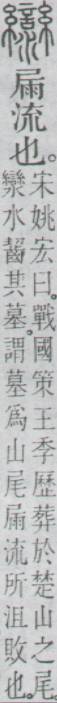 灓屚流也。
宋姚宏曰。戰國策王季歷葬於楚山之尾。
灓水齧其墓。謂墓爲山尾屚流所沮敗也。